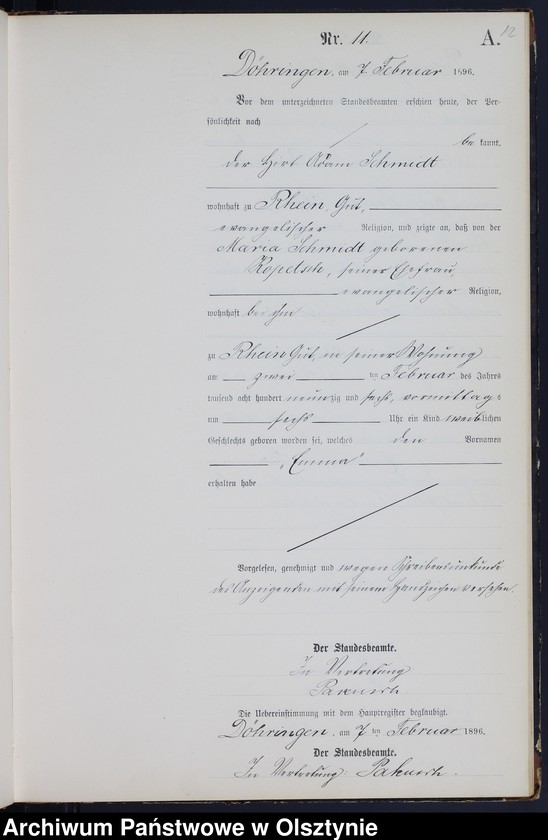 12
Nr. 11.
A.
Döhringen, am 7 Februar 1896.
Vor dem unterzeichneten Standesbeamten erschien heute, der Per-
sönlichkeit nach
be kannt,
der Hirt Adam Schmidt
wohnhaft zu Rhein Gut,
evangelischer Religion, und zeigte an, daß von der
Maria Schmidt geborenen
Kopetsch, seiner Ehefrau,
evangelischer Religion,
wohnhaft bei ihm
zu Rhein Gut, in seiner Wohnung
am zwei ten Februar des Jahres
tausend acht hundert neunzig und sechs, vormittags
um sechs Uhr ein Kind weiblichen
Geschlechts geboren worden sei, welches den Vornamen
"Emma"
erhalten habe
Vorgelesen, genehmigt und wegen Schreibensunkunde
des Anzeigenden mit seinem Handzeichen versehen.
Der Standesbeamte.
In Vertretung
Pakusch.
Die Uebereinstimmung mit dem Hauptregister beglaubigt.
Döhringen, am 7 ten Februar 1896.
Der Standesbeamte.
In Vertretung: Pakusch.
Archiwum Państwowe w Olsztynie